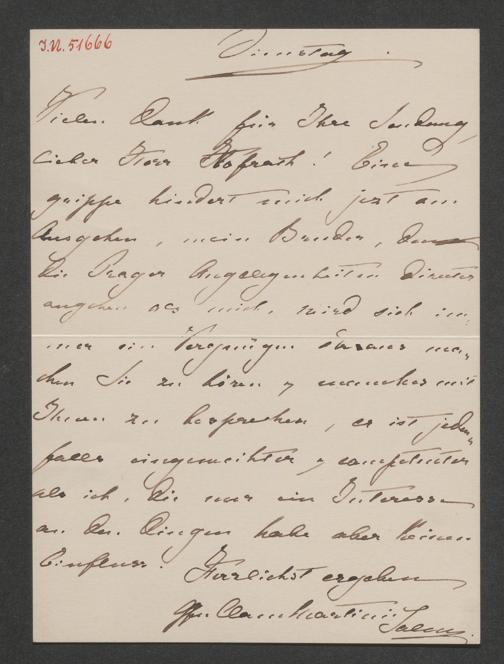 J.N. 51666
Dienstag.
Vielen Dank für Ihre Sendung,
lieber Herr Hofrath! Eine
grippe hindert mich jezt am
Ausgehen, mein Bruder, dem
die Prager Angelegenheiten directer
angehen als mich, wird sich im-
mer ein Vergnügen daraus ma-
chen Sie zu hören & manches mit
Ihnen zu besprechen, er ist jeden-
falls eingeweihter & competenter
als ich, die nur ein Interesse
an den Dingen habe aber keinen
Einfluss. Herzlichst ergeben
Clam Martinic
Salm